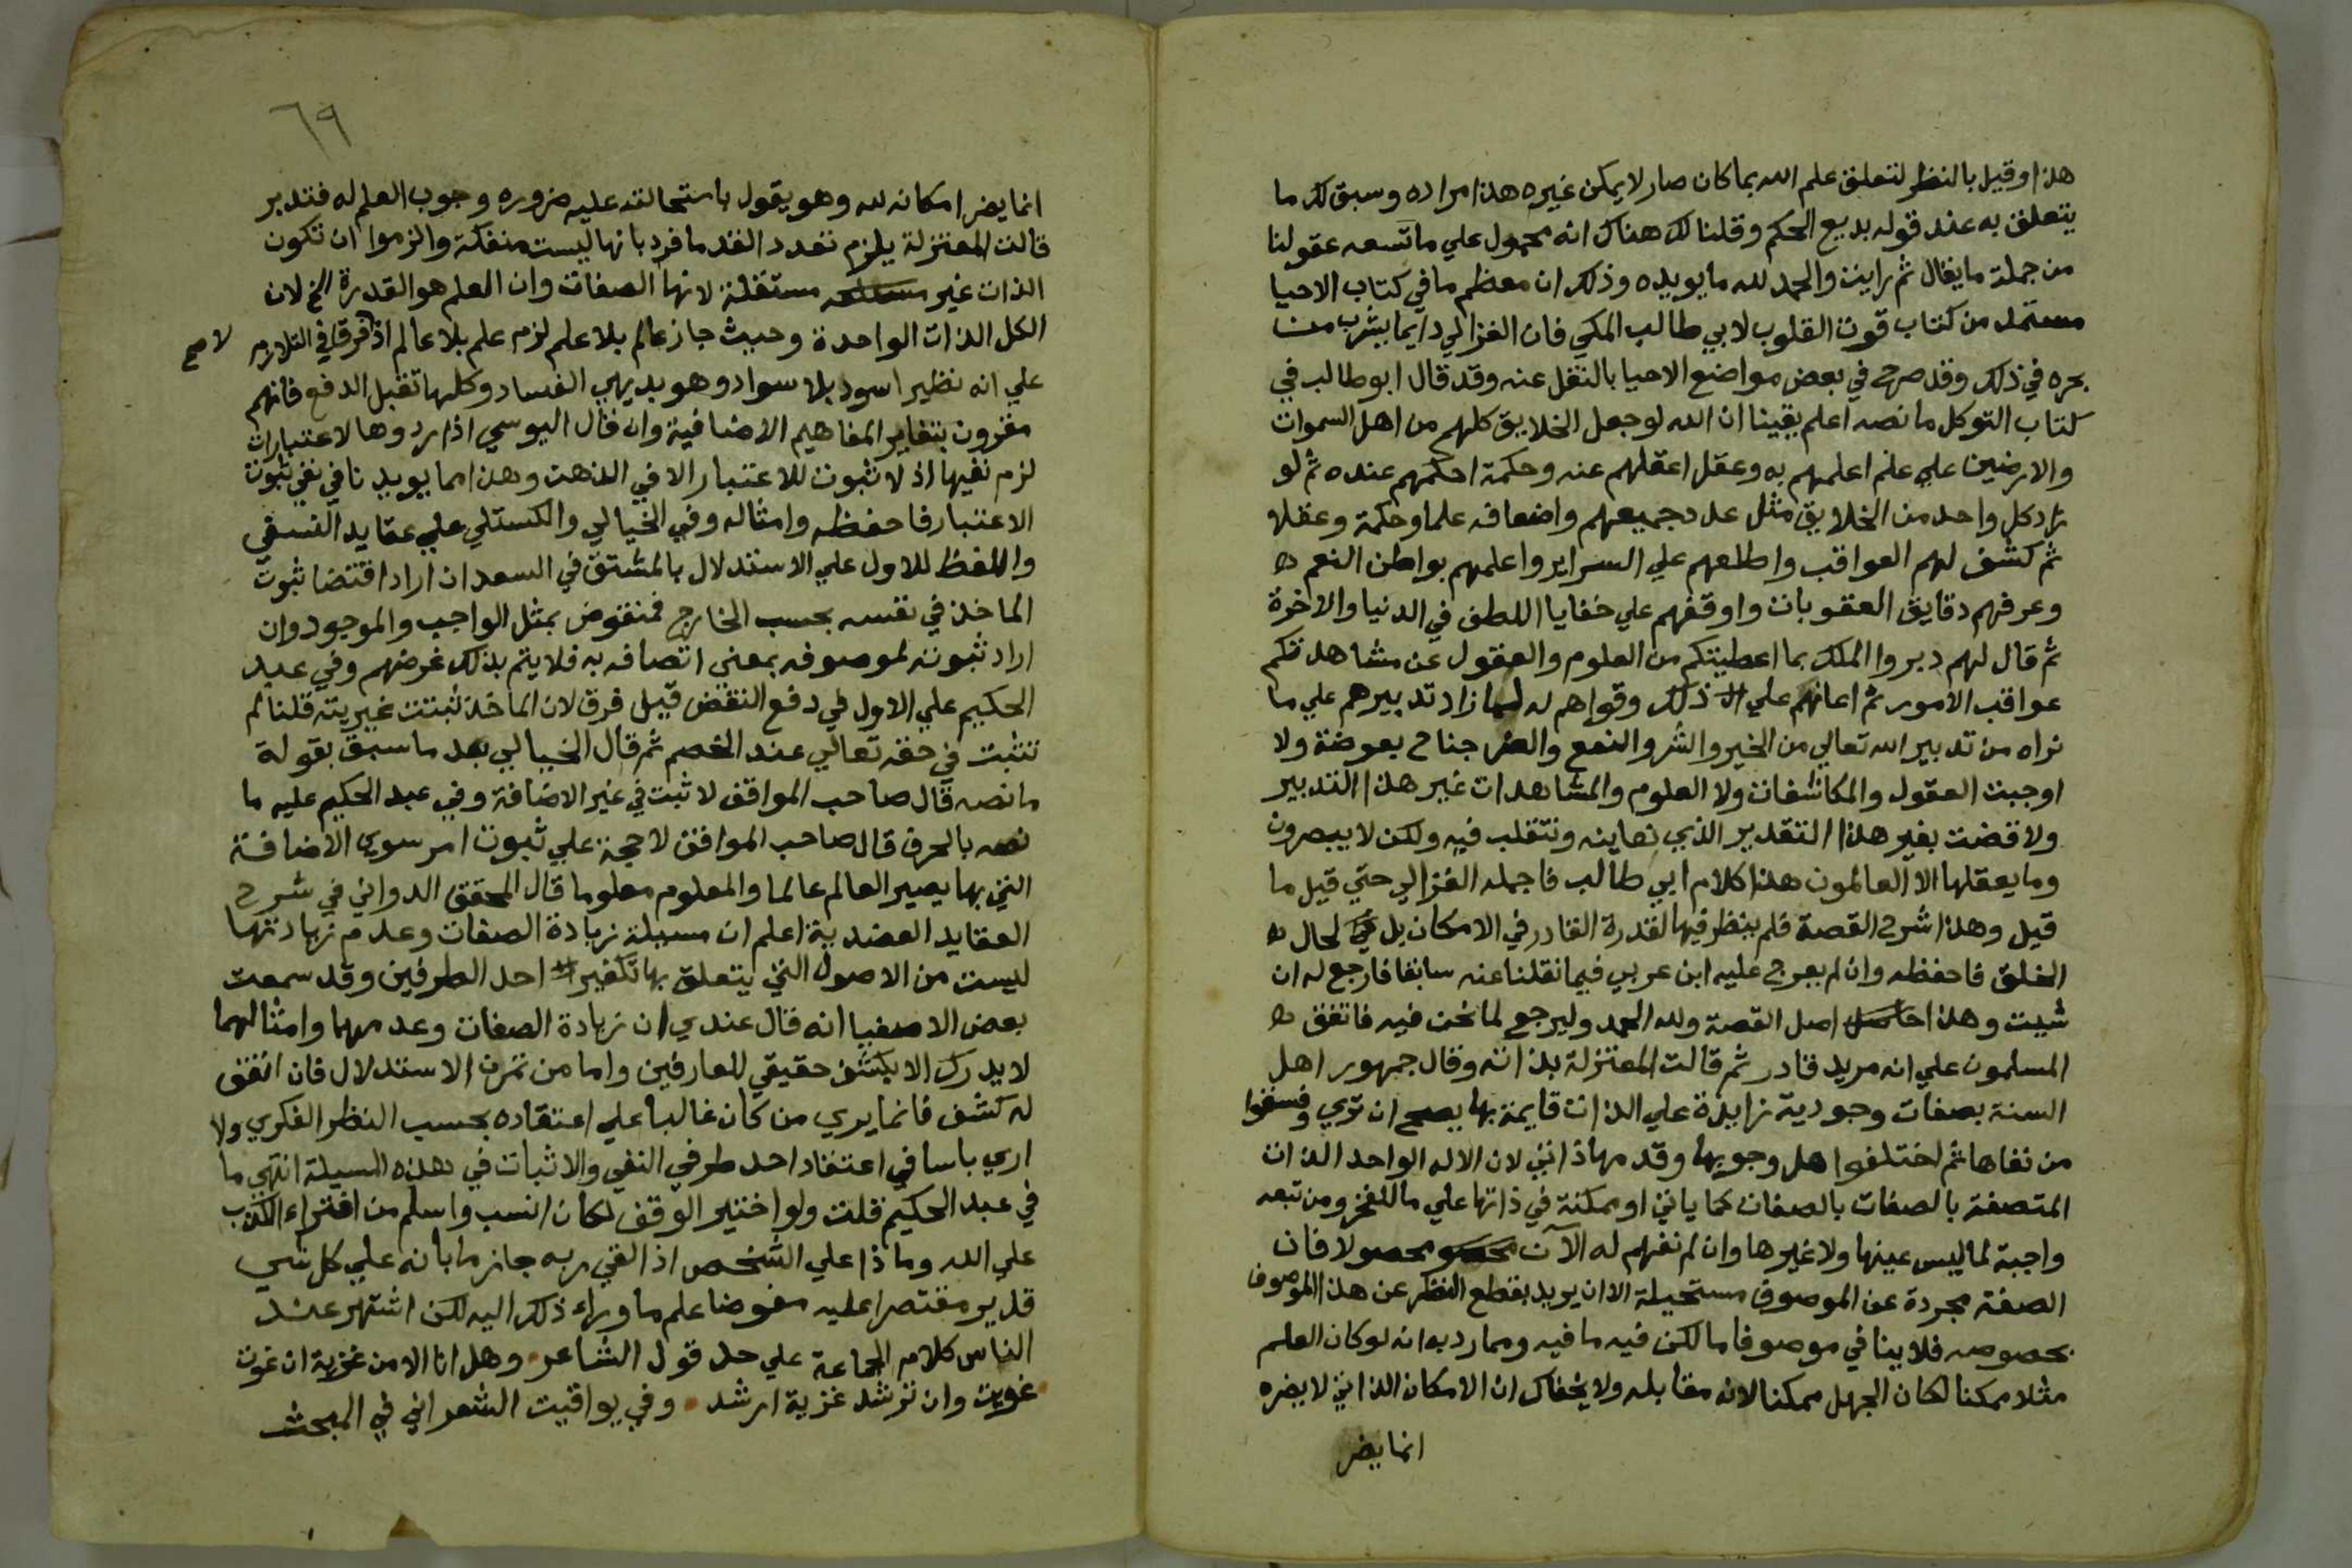 هذا وقيل بالنظر لتعلق علم الله بما كان صار لا يمكن غيره هذا مراده وسبق لك ما
يتعلق به عند قوله بديع الحكم وقلنا لك هناك انه محمول علي ما تسعه عقولنا
من جملة ما يقال ثم رايت والحمد لله ما يويده وذلك ان معظم ما في كتاب الاحيا
مستمد من كتاب قوت القلوب لابي طالب المكي فان الغزالي دايما يشرب من
بحره في ذلك وقد صرح في بعض مواضع الاحيا بالنقل عنه وقد قال ابو طالب في
كتاب التوكل ما نصه اعلم يقينا ان الله لو جعل الخلايق كلهم من اهل السموات
والارضين علي علم اعلمهم به وعقل اعقلهم عنه وحكمة احكمهم عنده ثم لو
زاد كل واحد من الخلايق مثل عدد جميعهم واضعافه علما وحكمة وعقلا
ثم كشف لهم العواقب واطلعهم علي السراير واعلمهم بواطن النعم
وعرفهم دقايق العقوبات واوقفهم علي خفايا اللطف في الدنيا والاخرة
ثم قال لهم دبروا الملك بما اعطيتكم من العلوم والعقول عن مشاهدتكم
عواقب الامور ثم اعانهم علي ذلك وقواهم له لما زاد تدبيرهم علي ما
نراه من تدبير الله تعالي من الخير والشر والنفع والضر جناح بعوضة ولا
اوجبت العقول والمكاشفات ولا العلوم والمشاهدات غير هذا التدبير
ولا قضت بغير هذا التقدير الذي نعاينه ونتقلب فيه ولكن لا يبصرون
وما يعقلها الا العالمون هذا كلام ابي طالب فاجمله الغزالي حتي قيل ما
قيل وهذا شرح القصة فلم ينظر فيها لقدرة القادر في الامكان بل لحال
الخلق فاحفظه وان لم يعرج عليه ابن عربي فيما نقلنا عنه سابقا فارجع له ان
شيت وهذا حاصل اصل القصة ولله الحمد وليرجع لما نحن فيه فاتفق
المسلمون علي انه مريد قادر ثم قالت المعتزلة بذاته وقال جمهور اهل
السنة بصفات وجودية زايدة علي الذات قايمة بها يصح ان تري وفسقوا
من نفاها ثم اختلفوا هل وجوبها وقدمها ذاتي لان الاله الواحد الذات
المتصفة بالصفات بالصفات كما ياتي او ممكنة في ذاتها علي ما للفخر ومن تبعه
واجبة لما ليس عينها ولا غيرها وان لم نفهم له الآن محصولا فان
الصفة مجردة عن الموصوف مستحيلة الا ان يريد بقطع النظر عن هذا الموصوف
بخصوصه فلا ينافي موصوفا ما لكن فيه ما فيه ومما رد به انه لو كان العلم
مثلا ممكنا لكان الجهل ممكنا لانه مقابله ولا يخفاك ان الامكان الذاتي لا يضره
انما يضر
٦٩
انما يضر امكانه لله وهو يقول باستحالته عليه ضروره وجوب العلم له فتدبر
قالت المعتزلة يلزم تعدد القدما فرد بانها ليست منفكة والزموا ان تكون
الذات غير مستقلة لانها الصفات وان العلم هو القدرة الخ لان
الكل الذات الواحدة وحيث جاز عالم بلا علم لزم علم بلا عالم اذ لا فرق في التلازم
لا صح
علي انه نظير اسود بلا سواد وهو بديهي الفساد وكلها تقبل الدفع فانهم
مقرون بتغاير المفاهيم الاضافية وان قال اليوسي اذا ردوها لاعتبارات
لزم نفيها اذ لا ثبوت للاعتبار الا في الذهن وهذا مما يويدنا في نفي ثبوت
الاعتبار فاحفظه وامثاله وفي الخيالي والكستلي علي عقايد النسفي
واللفظ للاول علي الاستدلال بالمشتق في السعد ان اراد اقتضا ثبوت
الماخذ في نفسه بحسب الخارج فمنقوض بمثل الواجب والموجود وان
اراد ثبوته لموصوفه بمعني اتصافه به فلا يتم بذلك غرضهم وفي عبد
الحكيم علي الاول في دفع النقض قيل فرق لان الماخذ ثبتت غيريته قلنا لم
تثبت في حقه تعالي عند الخصم ثم قال الخيالي بعد ما سبق بقولة
ما نصه قال صاحب المواقف لا ثبت في غير الاضافة وفي عبد الحكيم عليه ما
نصه بالحرف قال صاحب المواقف لا حجة علي ثبوت امر سوي الاضافة
التي بها يصير العالم عالما والمعلوم معلوما قال المحقق الدواني في شرح
العقايد العضدية اعلم ان مسيلة زيادة الصفات وعدم زيادتها
ليست من الاصول التي يتعلق بها تكفير احد الطرفين وقد سمعت
بعض الاصفيا انه قال عندي ان زيادة الصفات وعدمهما وامثالهما
لا يدرك الا بكشف حقيقي للعارفين واما من تمرن الاستدلال فان اتفق
له كشف فانما يري من كان غالبا علي اعتقاده بحسب النظر الفكري ولا
اري باسا في اعتقاد احد طرفي النفي والاثبات في هذه المسيلة انتهي ما
في عبد الحكيم قلت ولو اختير الوقف لكان انسب واسلم من افتراء الكذب
علي الله وماذا علي الشخص اذا لقي ربه جازما بانه علي كل شي
قدير مقتصرا عليه مفوضا علم ما وراء ذلك اليه لكن اشتهر عند
الناس كلام الجماعة علي حد قول الشاعر وهل انا الا من غزية ان غوت
غويت وان ترشد غزية ارشد وفي يواقيت الشعراني في المبحث